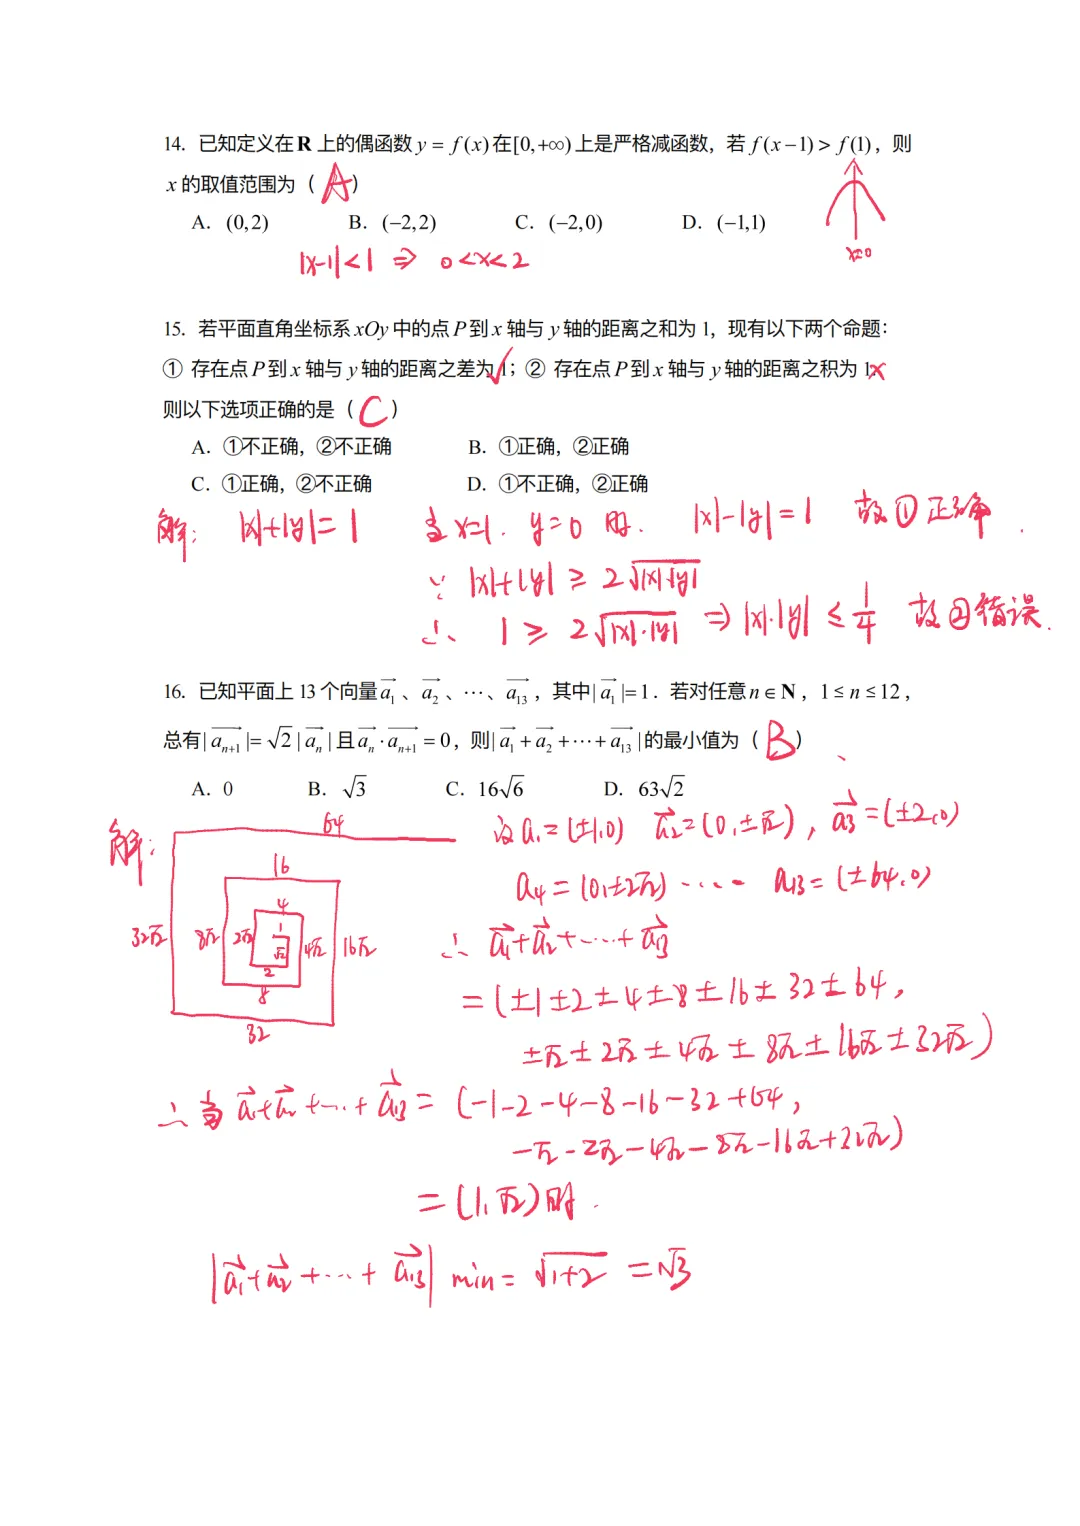 14. 已知定义在 R 上的偶函数 y = f(x) 在[0,+∞)上是严格减函数，若 f(x−1) > f(1)，则
x 的取值范围为（ A ）
A. (0,2) B. (−2,2) C. (−2,0) D. (−1,1)
x=0
|x-1|<1 ⇒ 0<x<2
15. 若平面直角坐标系 xOy 中的点 P 到 x 轴与 y 轴的距离之和为 1，现有以下两个命题：
① 存在点 P 到 x 轴与 y 轴的距离之差为 1；② 存在点 P 到 x 轴与 y 轴的距离之积为 1.
则以下选项正确的是（ C ）
A. ①不正确，②不正确 B. ①正确，②正确
C. ①正确，②不正确 D. ①不正确，②正确
解: |x|+|y|=1 当x=1. y=0 时. |x|-|y|=1 故①正确.
∵ |x|+|y| ≥ 2√|x|·|y|
∴ 1 ≥ 2√|x|·|y| ⇒ |x|·|y| ≤ 1/4 故②错误.
16. 已知平面上 13 个向量 a₁、a₂、⋯、a₁₃，其中| a₁ |=1. 若对任意 n ∈ N，1 ≤ n ≤ 12，
总有| aₙ₊₁ |= √2 | aₙ |且 aₙ · aₙ₊₁ = 0，则| a₁ + a₂ + ⋯ + a₁₃ |的最小值为（ B ）
A. 0 B. √3 C. 16√6 D. 63√2
解:
64
16
4
1
32√2 8√2 2√2 √2 4√2 16√2
2
8
32
设a₁=(±1,0) a₂=(0,±√2), a₃=(±2,0)
a₄=(0,±2√2) ---- a₁₃=(±64,0)
∴ a₁+a₂+⋯+a₁₃
=(±1±2±4±8±16±32±64,
±√2±2√2±4√2±8√2±16√2±32√2)
∴当 a₁+a₂+⋯+a₁₃ = (-1-2-4-8-16-32+64,
-√2-2√2-4√2-8√2-16√2+32√2)
=(1,√2)时.
|a₁+a₂+⋯+a₁₃| min= √1+2 =√3